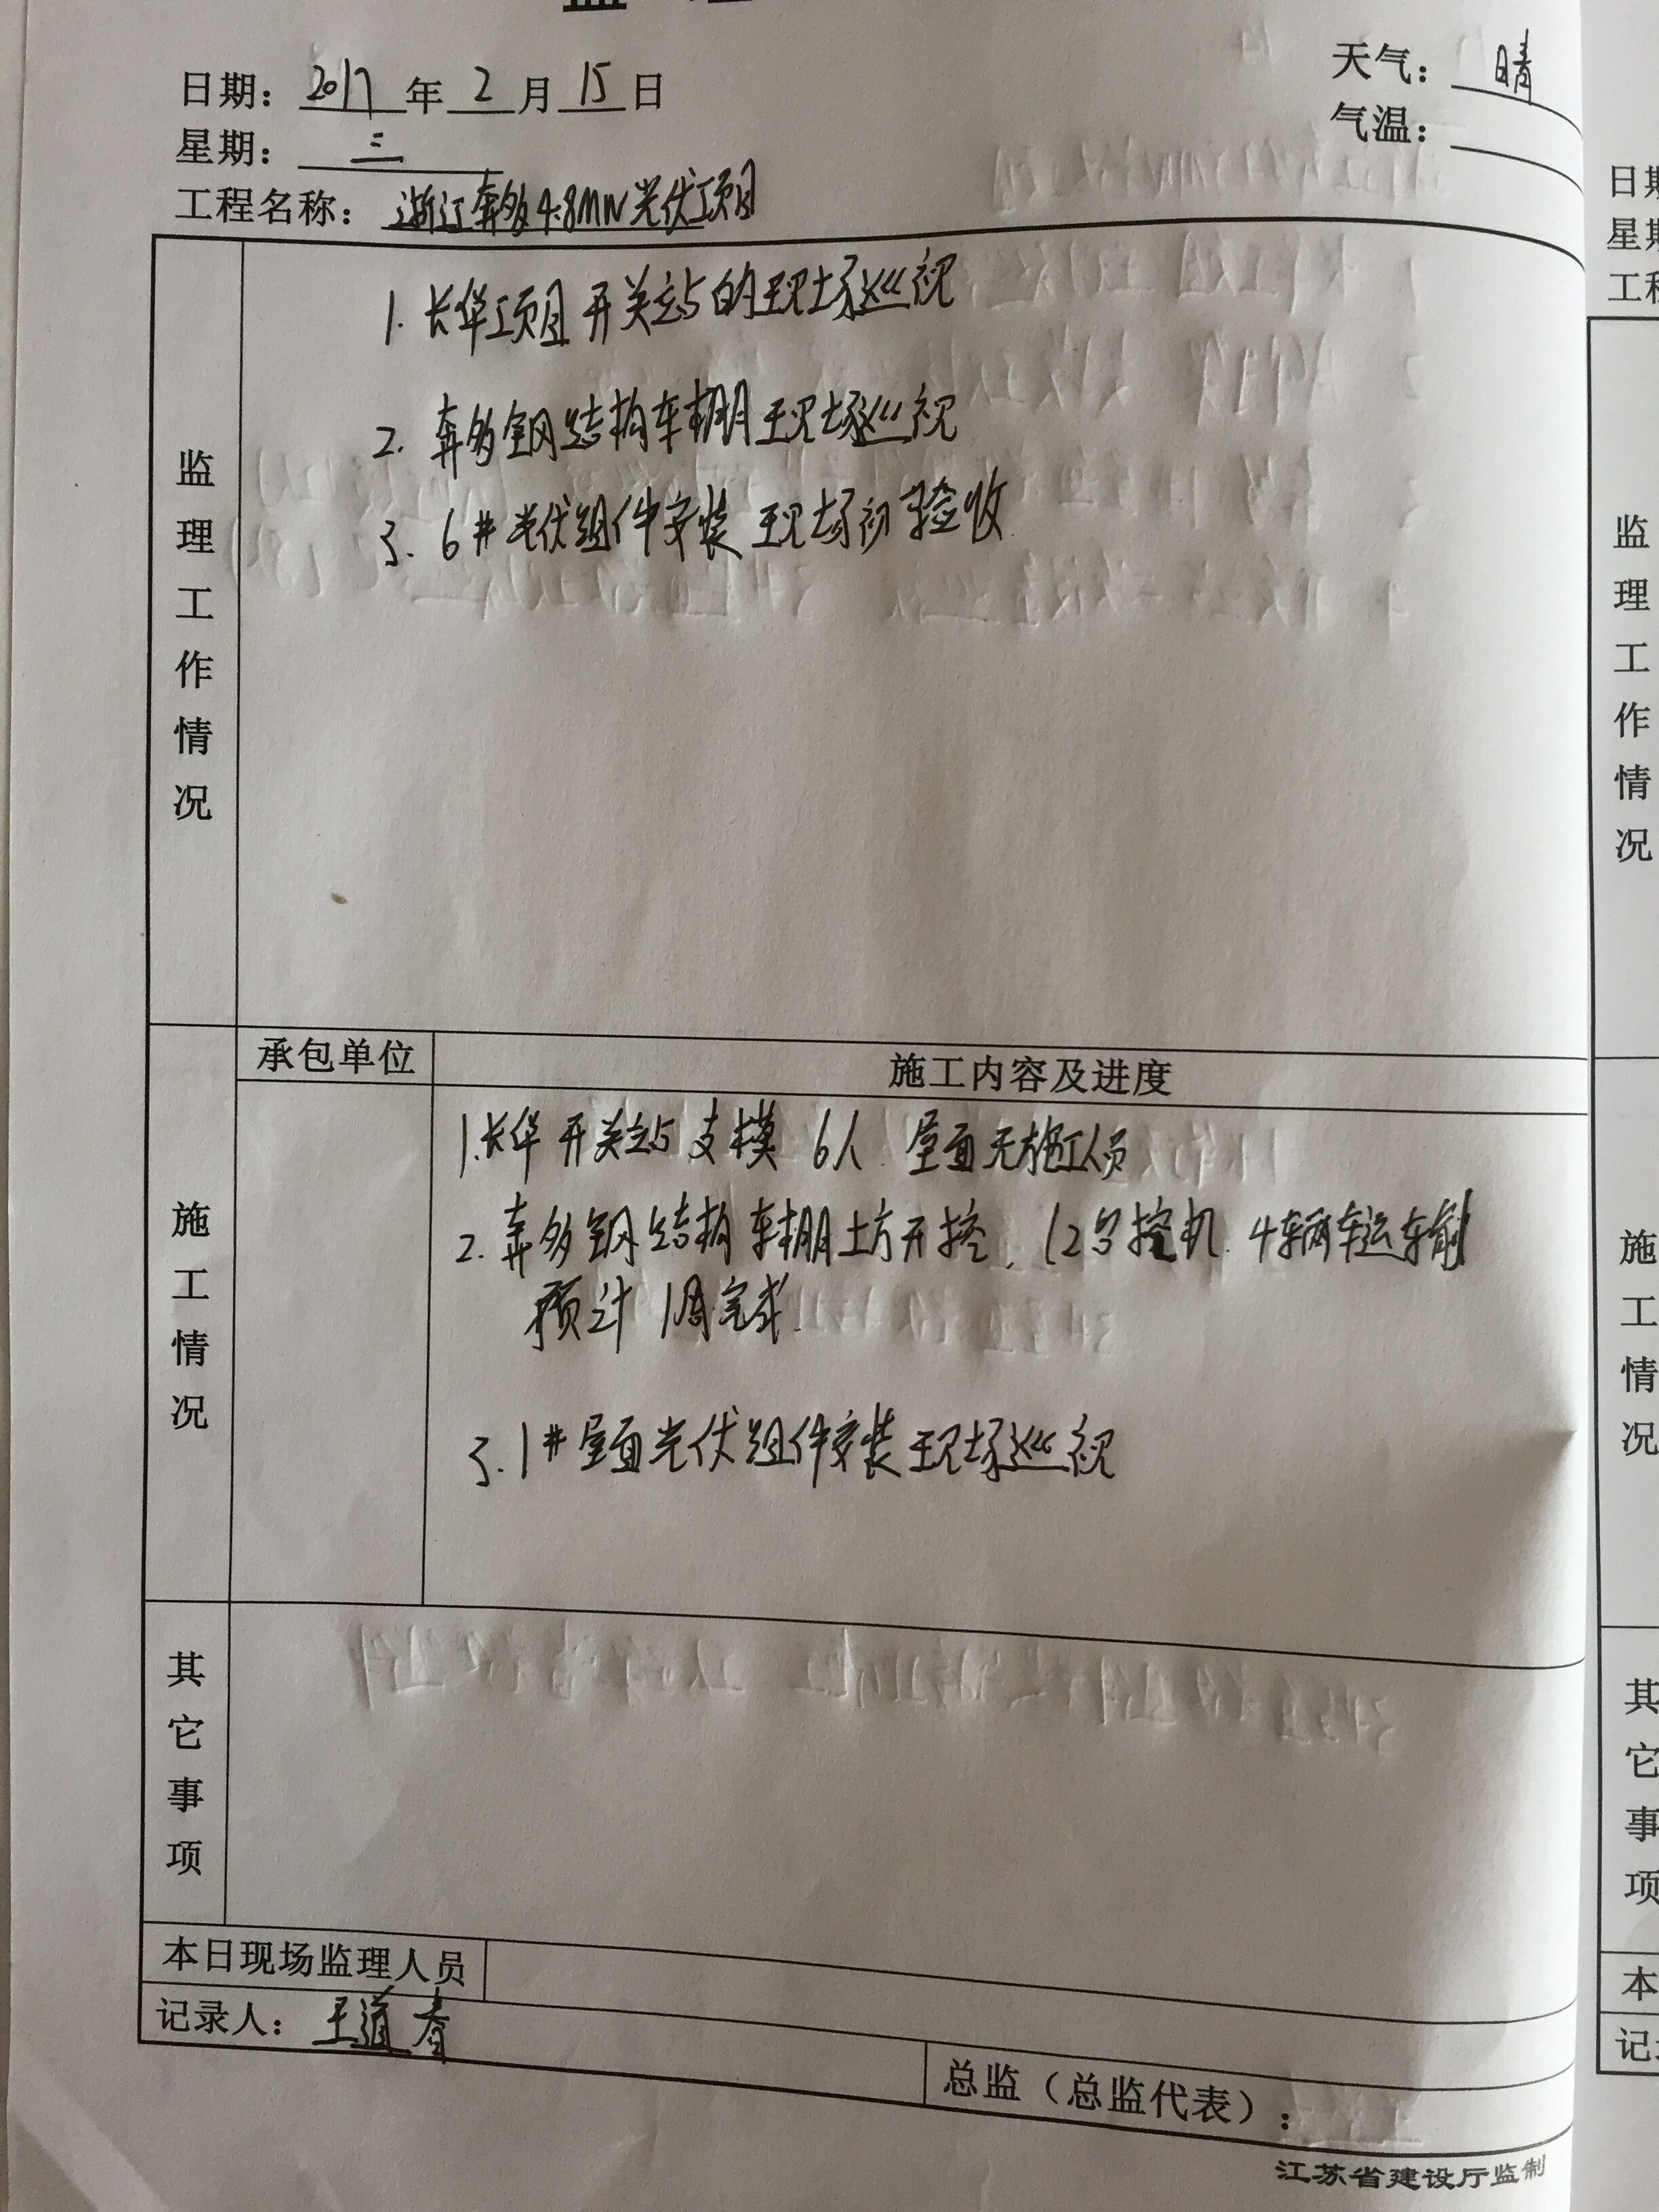 日期：2017年2月15日
天气：晴
星期：三
气温：
工程名称：浙江奔多4.8MW光伏项目
监理工作情况
1. 长华项目开关站的现场巡视
2. 奔多钢结构车棚现场巡视
3. 6#光伏组件安装现场初验收
承包单位
施工内容及进度
施工情况
1.长华开关站支模 6人 屋面无施工人员
2. 奔多钢结构车棚土方开挖、12号挖机 4辆车运输
预计1周完成.
3. 1#屋面光伏组件安装现场巡视
其它事项
本日现场监理人员
记录人：王道春
总监（总监代表）：
江苏省建设厅监制
日期
星期
工程
监理工作情况
施工情况
其它事项
本
记